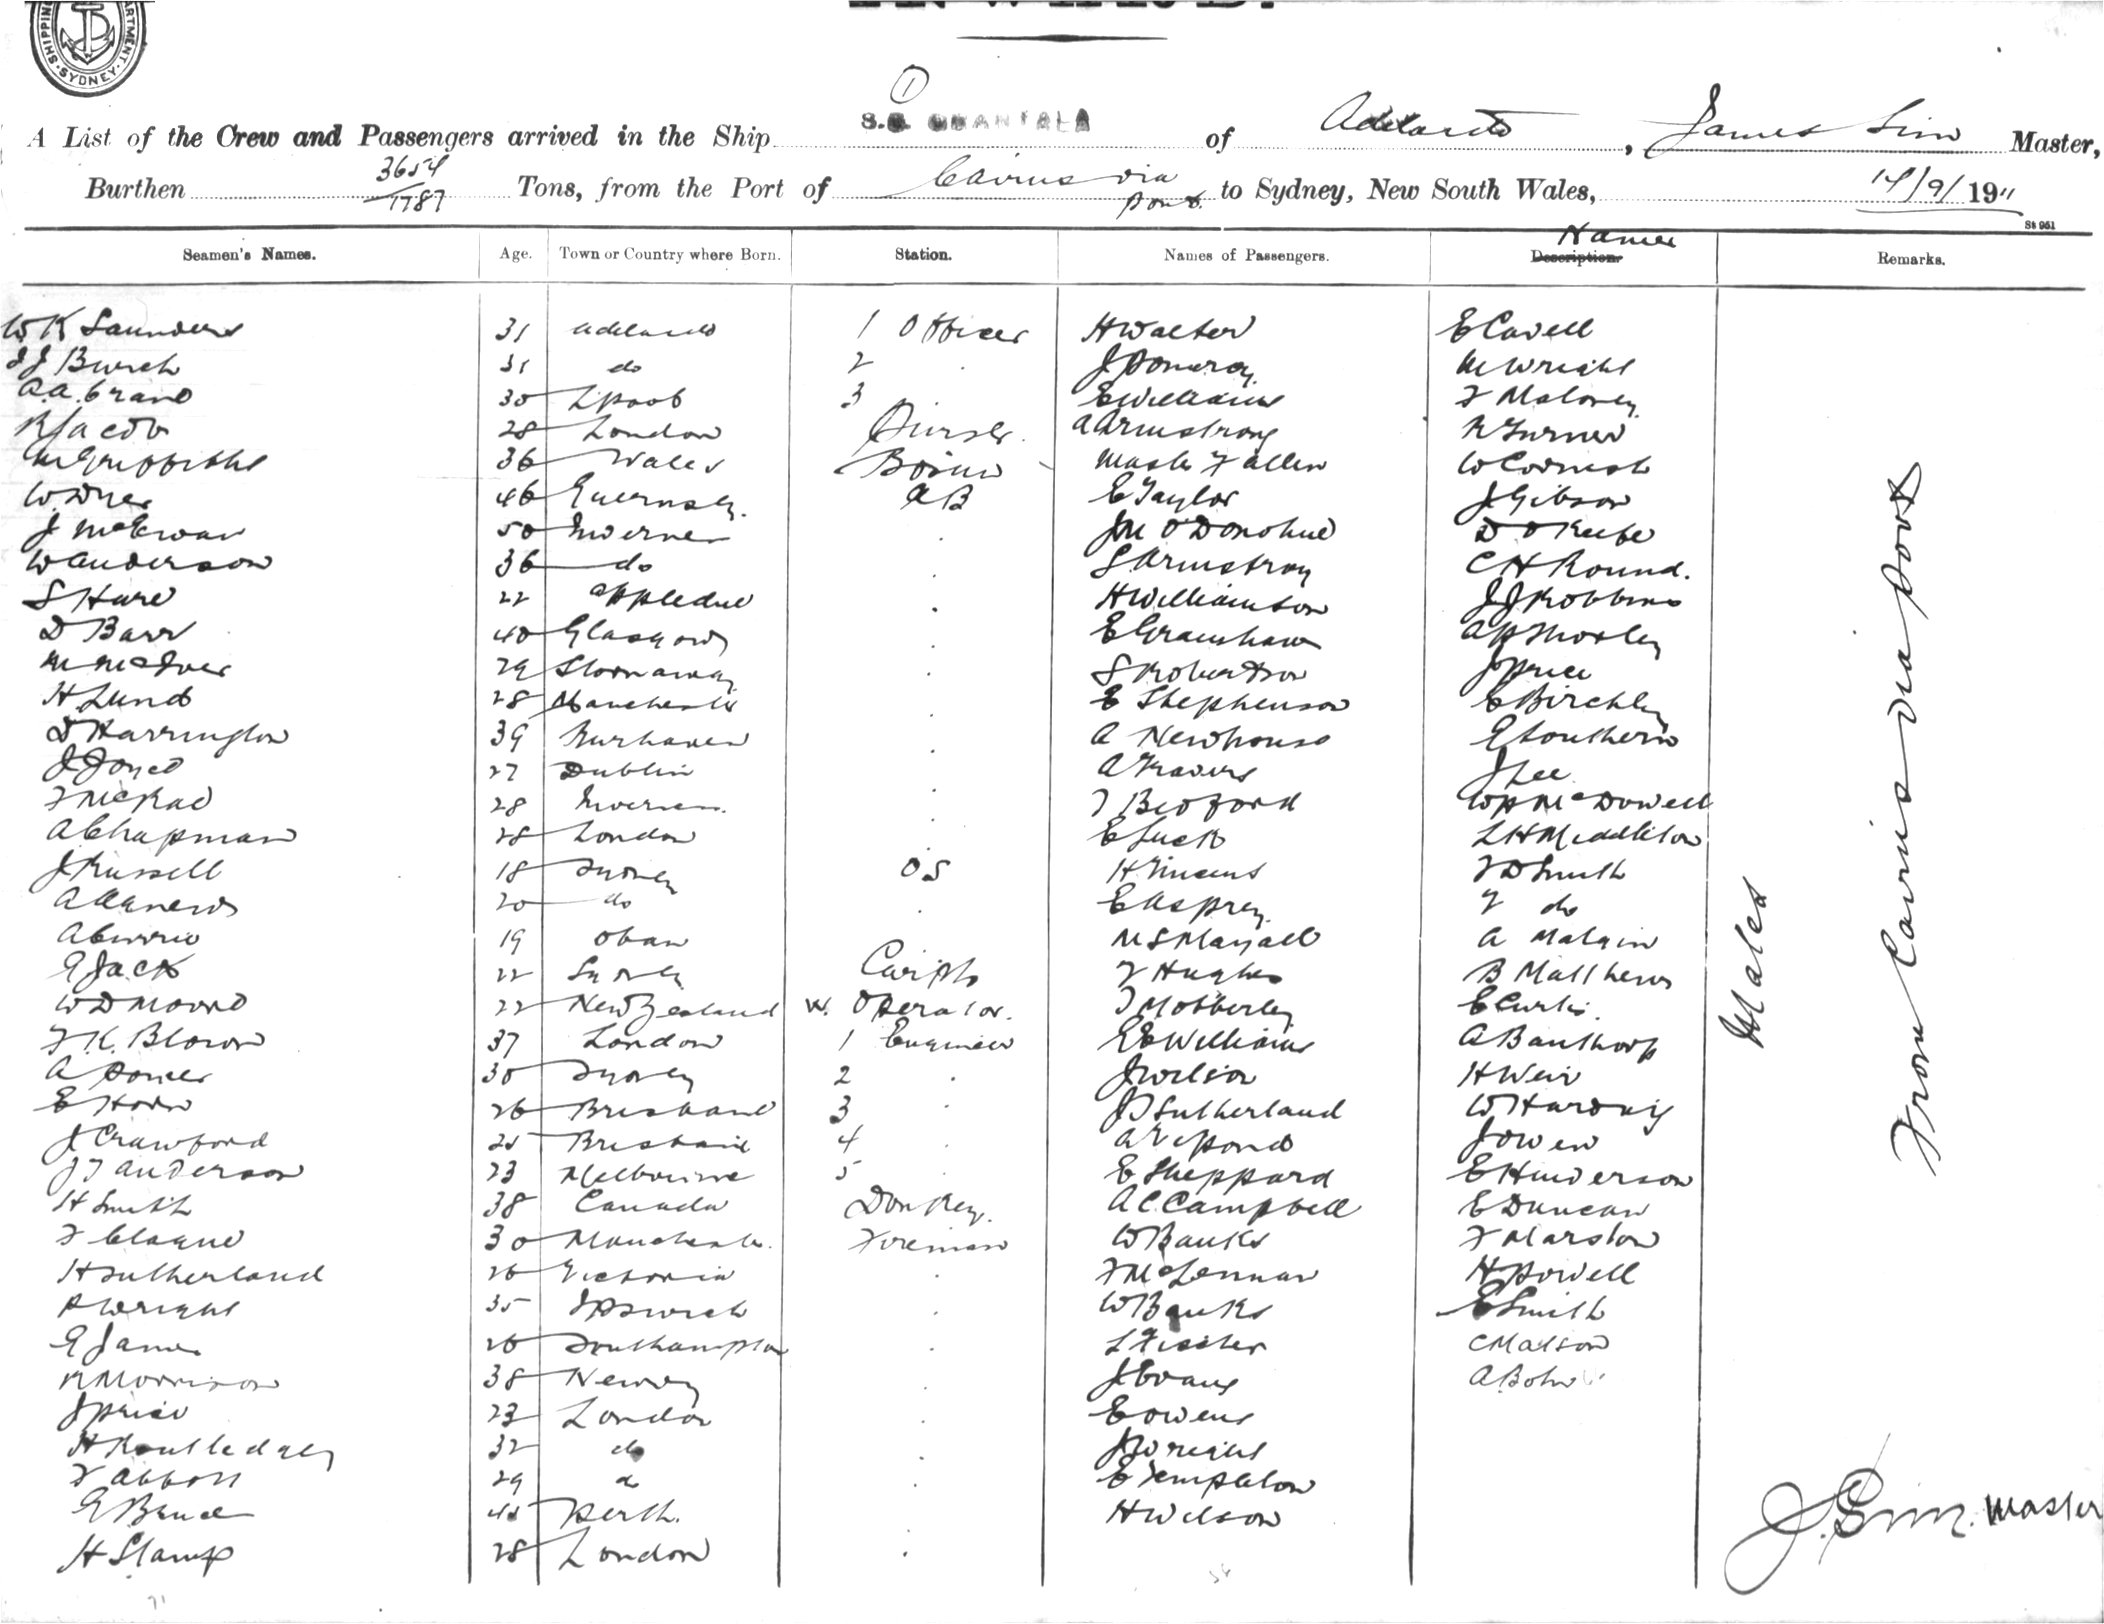 SHIPPING DEPARTMENT SYDNEY
INWARD.
1
A List of the Crew and Passengers arrived in the Ship S.S. GRANTALA of Adelaide, James Sim Master,
Burthen 3654/1787 Tons, from the Port of Cairns via Ports to Sydney, New South Wales, 14/9/1911
St 951
Seamen's Names. Age. Town or Country where Born. Station. Names of Passengers. Description Names Remarks.
W K Saunders 31 Adelaide 1 Officer H Walter E Cavell
J J Burch 31 do 2 J Pomeroy M Wright
A.A. Grand 30 L'pool 3 E Williams F Maloney
R Jacob 28 London Purser A Armstrong R Turner
M Griffiths 36 Wales Bosun Master F Allen W Cornish
W Dyer 46 Guernsey A B E Taylor J Gibson
J McEwan 50 Inverness J M O'Donohue D O Keefe
W Anderson 36 do S Armstrong C H Round.
S Hare 22 Appledore H Williamson J J Robbins
D Barr 40 Glasgow E Grimshaw A P Morley
M McIver 29 Stornaway S Robertson J Price
H Lund 28 Manchester E Stephenson E Birchley
D Harrington 39 A Newhouse E Southern
J Joyce 27 Dublin A Travers J Lee
F McRae 28 Inverness T Bedford W P McDowell
A Chapman 28 London E Luck L H Middleton
J Russell 18 Sydney O S H Vincent F D Smith
A Agnew 20 do E Asprey F do
A Currie 19 Oban M S Mayall A Malgin
G Jack 22 Sydney F Hughes B Matthews
W D Moore 22 New Zealand W. Operator. T Motberley E Curtis
F K. Blown 37 London 1 Engineer E E Williams A Banthorp
A Power 30 Sydney 2 J Wilson H Weir
E Horn 26 Brisbane 3 J T Sutherland W Hardwig
J Crawford 25 Brisbane 4 A Vipond J Owen
J T Anderson 23 Melbourne 5 E Sheppard E Henderson
H Smith 38 Canada Donkey. A C Campbell E Duncan
F Clague 30 Manchester. Fireman W Banks F Marston
H Sutherland 26 Victoria F McLennan H Powell
P Wright 35 Ipswich W Banks E Smith
G James 26 Southampton L Fischer C Matson
R Morrison 38 Newry J Evans A Bohn
J Price 23 London E Owens
H Routledge 32 do J Wright
F Abbott 29 do E Templeton
G Bruce 41 Perth. H Wilson
H Stamp 28 London
Males
From Cairns via ports
J. Sim. Master
71